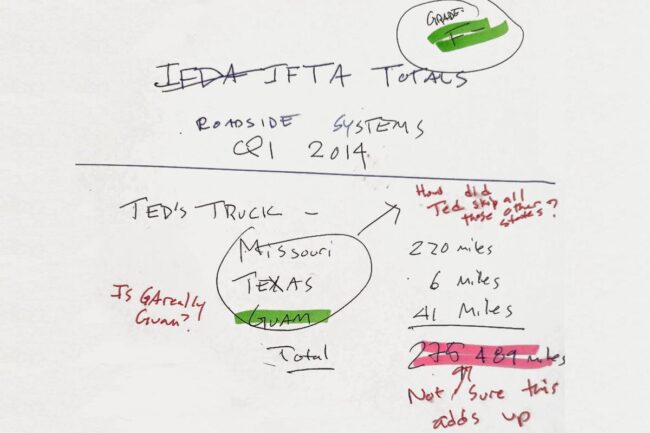 GRADE:
F-
IFDA IFTA TOTALS
ROADSIDE SYSTEMS
Q1 2014
How did
Ted skip all
those other
states?
TED'S TRUCK -
Missouri 220 miles
TEXAS 6 Miles
GUAM 41 Miles
Is GA really
Guam?
Total 276 489 Miles
Not sure this
adds up